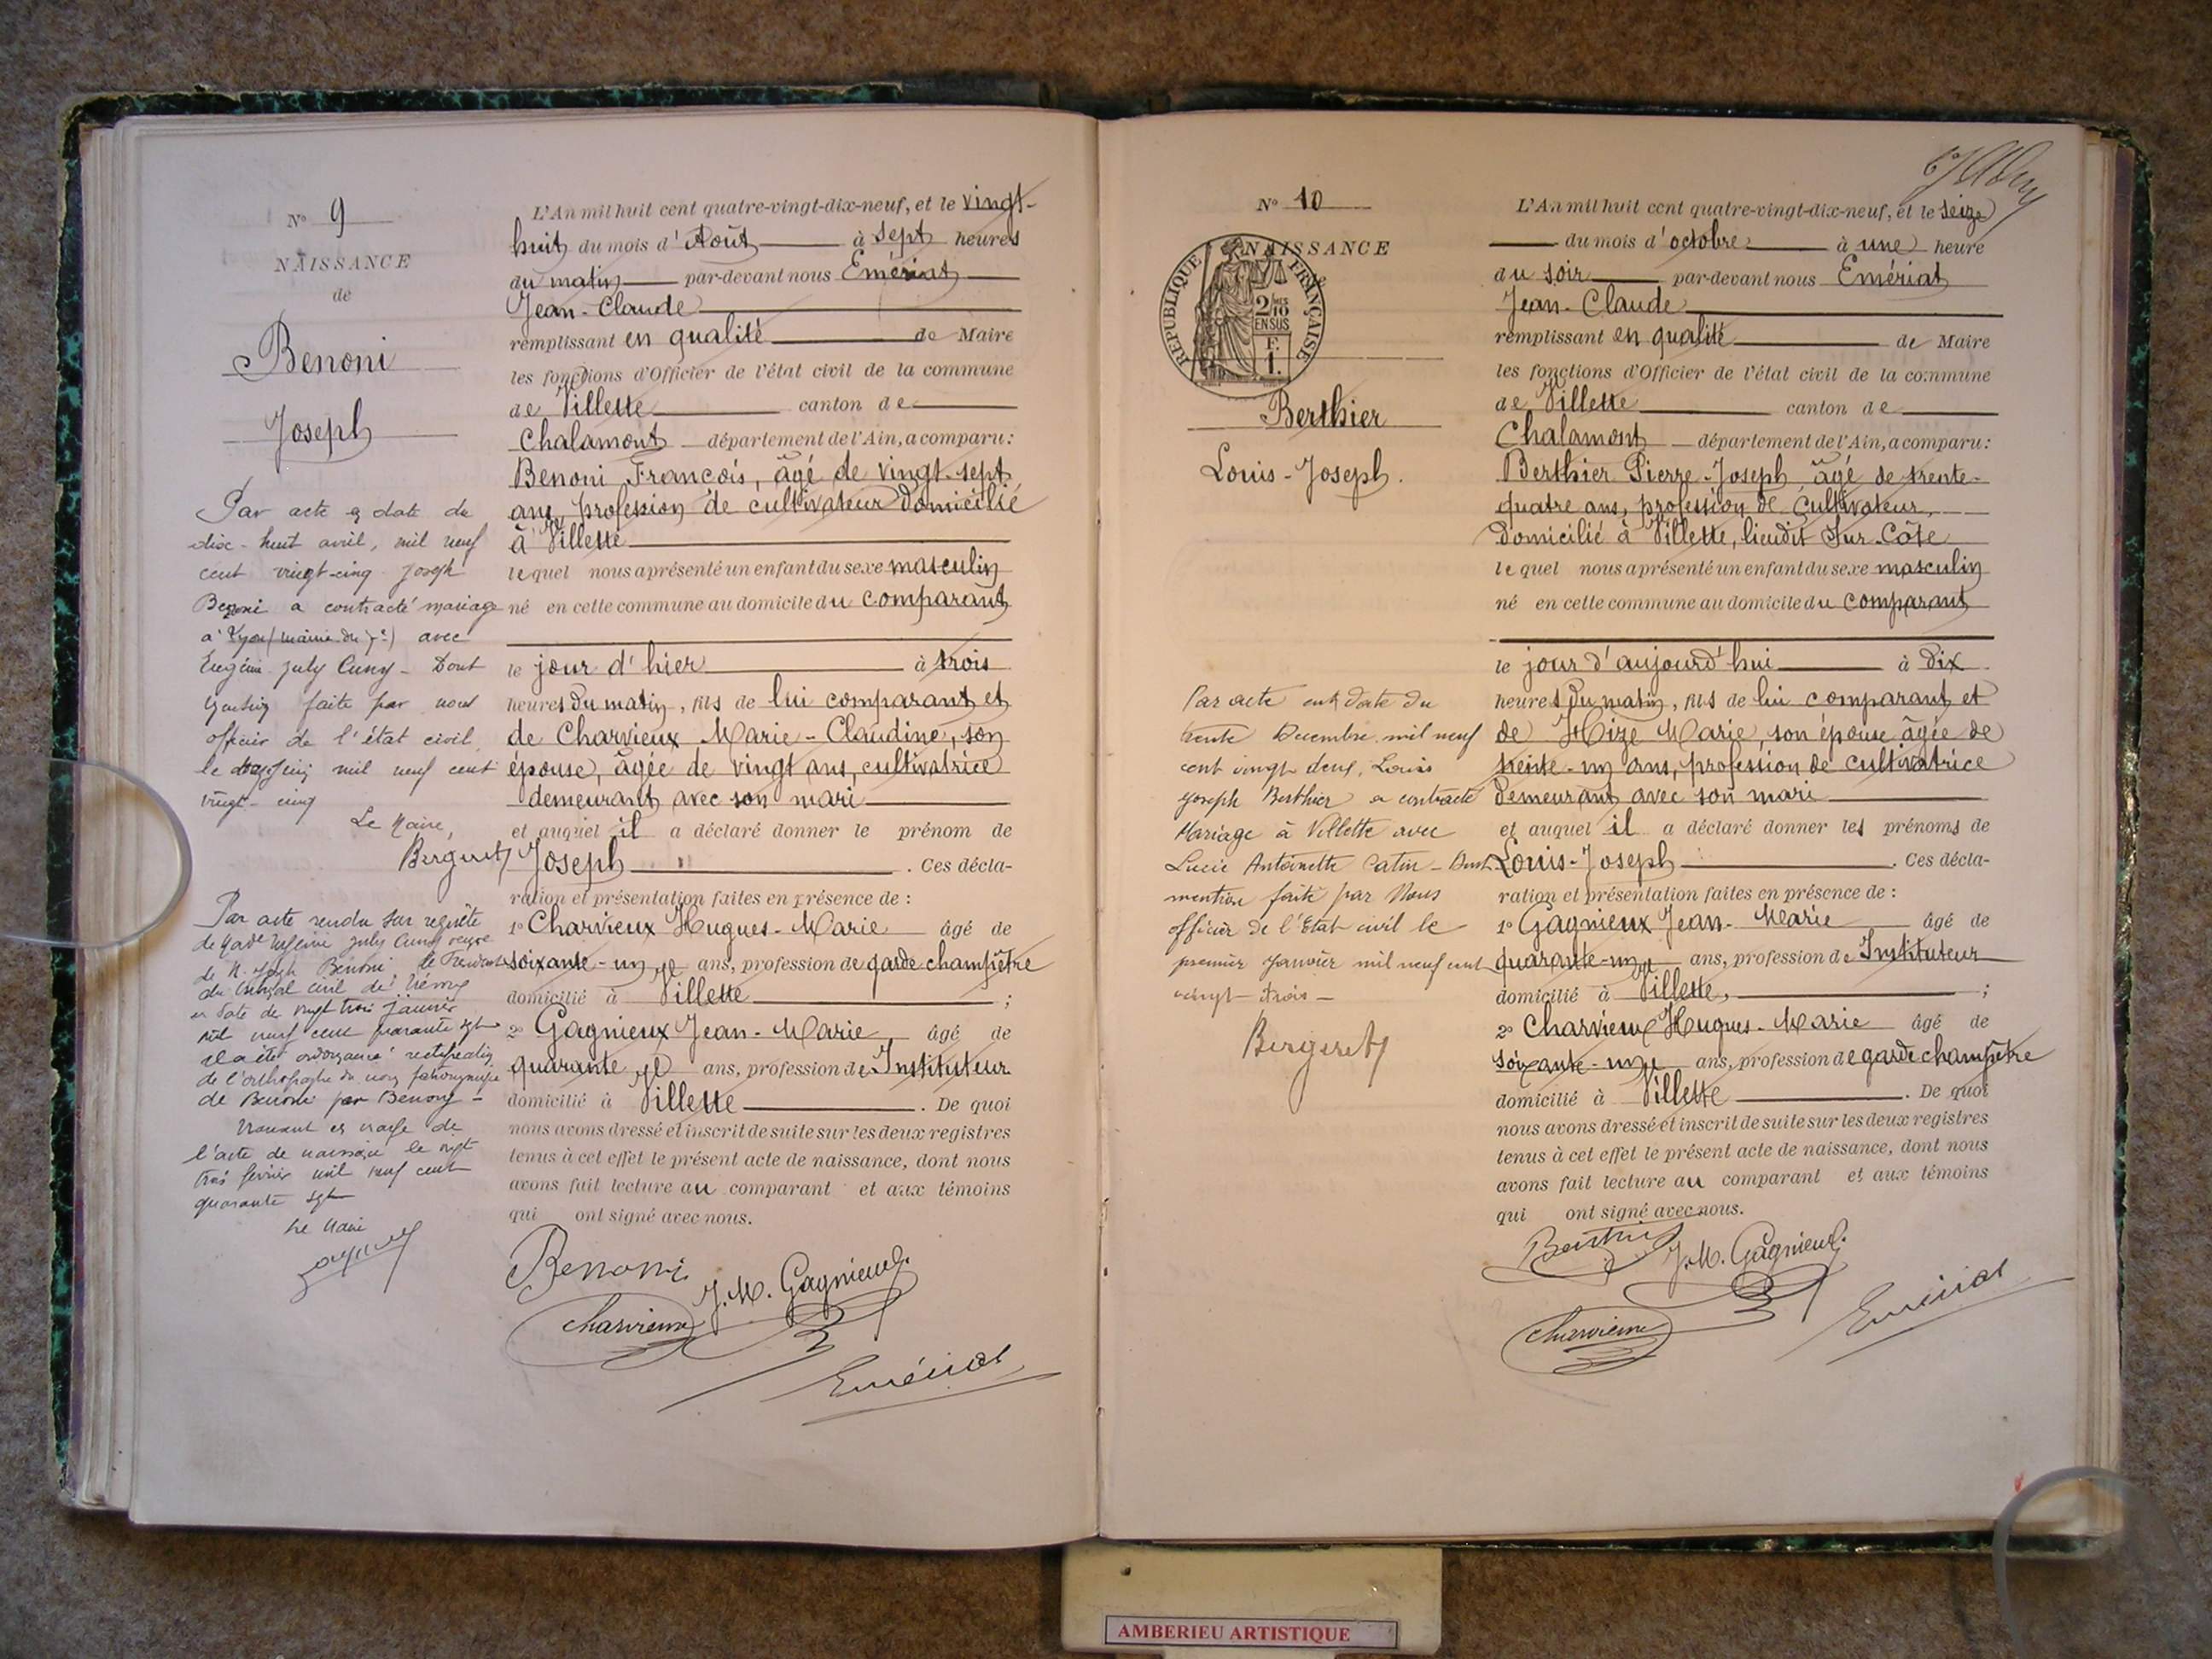 N° 9
NAISSANCE
de
Benoni
Joseph
Par acte en date du
dix-huit avril, mil neuf
cent vingt-cinq Joseph
Benoni a contracté mariage
à Lyon (mairie du) avec
Eugénie July Cuny - Dont
faite par nous
officier de l'état civil
le mil neuf cent
vingt-cinq
Le Maire,
Bergeret
Par acte rendu sur requête
de Made Eugénie July Cuny veuve
de M. Joseph Benoni, le Président
du tribunal civil de
en date du vingt trois janvier
mil neuf cent quarante sept
il a été ordonné rectification
de l'orthographe du nom patronymique
de Benoni par Benony -
en marge de
l'acte de naissance le vingt
trois février mil neuf cent
quarante sept
Le Maire
L'An mil huit cent quatre-vingt-dix-neuf, et le vingt-
huit du mois d'Août à sept heures
du matin par-devant nous Emériat
Jean-Claude
remplissant en qualité de Maire
les fonctions d'Officier de l'état civil de la commune
de Villette canton de
Chalamont département de l'Ain, a comparu:
Benoni François, âgé de vingt-sept
ans, profession de cultivateur domicilié
à Villette
lequel nous a présenté un enfant du sexe masculin
né en cette commune au domicile du comparant
le jour d'hier à trois
heures du matin, fils de lui comparant et
de Charvieux Marie-Claudine, son
épouse, âgée de vingt ans, cultivatrice
demeurant avec son mari
et auquel il a déclaré donner le prénom de
Joseph . Ces décla-
ration et présentation faites en présence de :
1° Charvieux Hugues-Marie âgé de
soixante-un ans, profession de garde champêtre
domicilié à Villette ;
2° Gagnieux Jean-Marie âgé de
quarante ans, profession de Instituteur
domicilié à Villette . De quoi
nous avons dressé et inscrit de suite sur les deux registres
tenus à cet effet le présent acte de naissance, dont nous
avons fait lecture au comparant et aux témoins
qui ont signé avec nous.
Benoni
J. M. Gagnieux
Charvieux
Emériat
N° 10
NAISSANCE
REPUBLIQUE FRANÇAISE
2/10 EN SUS
F. 1.
Berthier
Louis-Joseph.
Par acte en date du
trente Decembre mil neuf
cent vingt deux, Louis
Joseph Berthier a contracté
Mariage à Villette avec
Lucie Antoinette Catin - Dont
mention faite par Nous
officier de l'Etat civil le
premier Janvier mil neuf cent
vingt-trois -
Bergeret
L'An mil huit cent quatre-vingt-dix-neuf, et le seize
du mois d'octobre à une heure
du soir par-devant nous Emériat
Jean-Claude
remplissant en qualité de Maire
les fonctions d'Officier de l'état civil de la commune
de Villette canton de
Chalamont département de l'Ain, a comparu:
Berthier Pierre-Joseph âgé de trente-
quatre ans, profession de Cultivateur,
domicilié à Villette, lieudit Sur-Côte
lequel nous a présenté un enfant du sexe masculin
né en cette commune au domicile du comparant
le jour d'aujourd'hui à dix
heures du matin, fils de lui comparant et
de Mize Marie, son épouse âgée de
trente-un ans, profession de cultivatrice
demeurant avec son mari
et auquel il a déclaré donner les prénoms de
Louis-Joseph . Ces décla-
ration et présentation faites en présence de :
1° Gagnieux Jean-Marie âgé de
quarante-un ans, profession de Instituteur
domicilié à Villette, ;
2° Charvieux Hugues-Marie âgé de
soixante-un ans, profession de garde champêtre
domicilié à Villette . De quoi
nous avons dressé et inscrit de suite sur les deux registres
tenus à cet effet le présent acte de naissance, dont nous
avons fait lecture au comparant et aux témoins
qui ont signé avec nous.
Berthier
J. M. Gagnieux
Charvieux
Emériat
AMBERIEU ARTISTIQUE